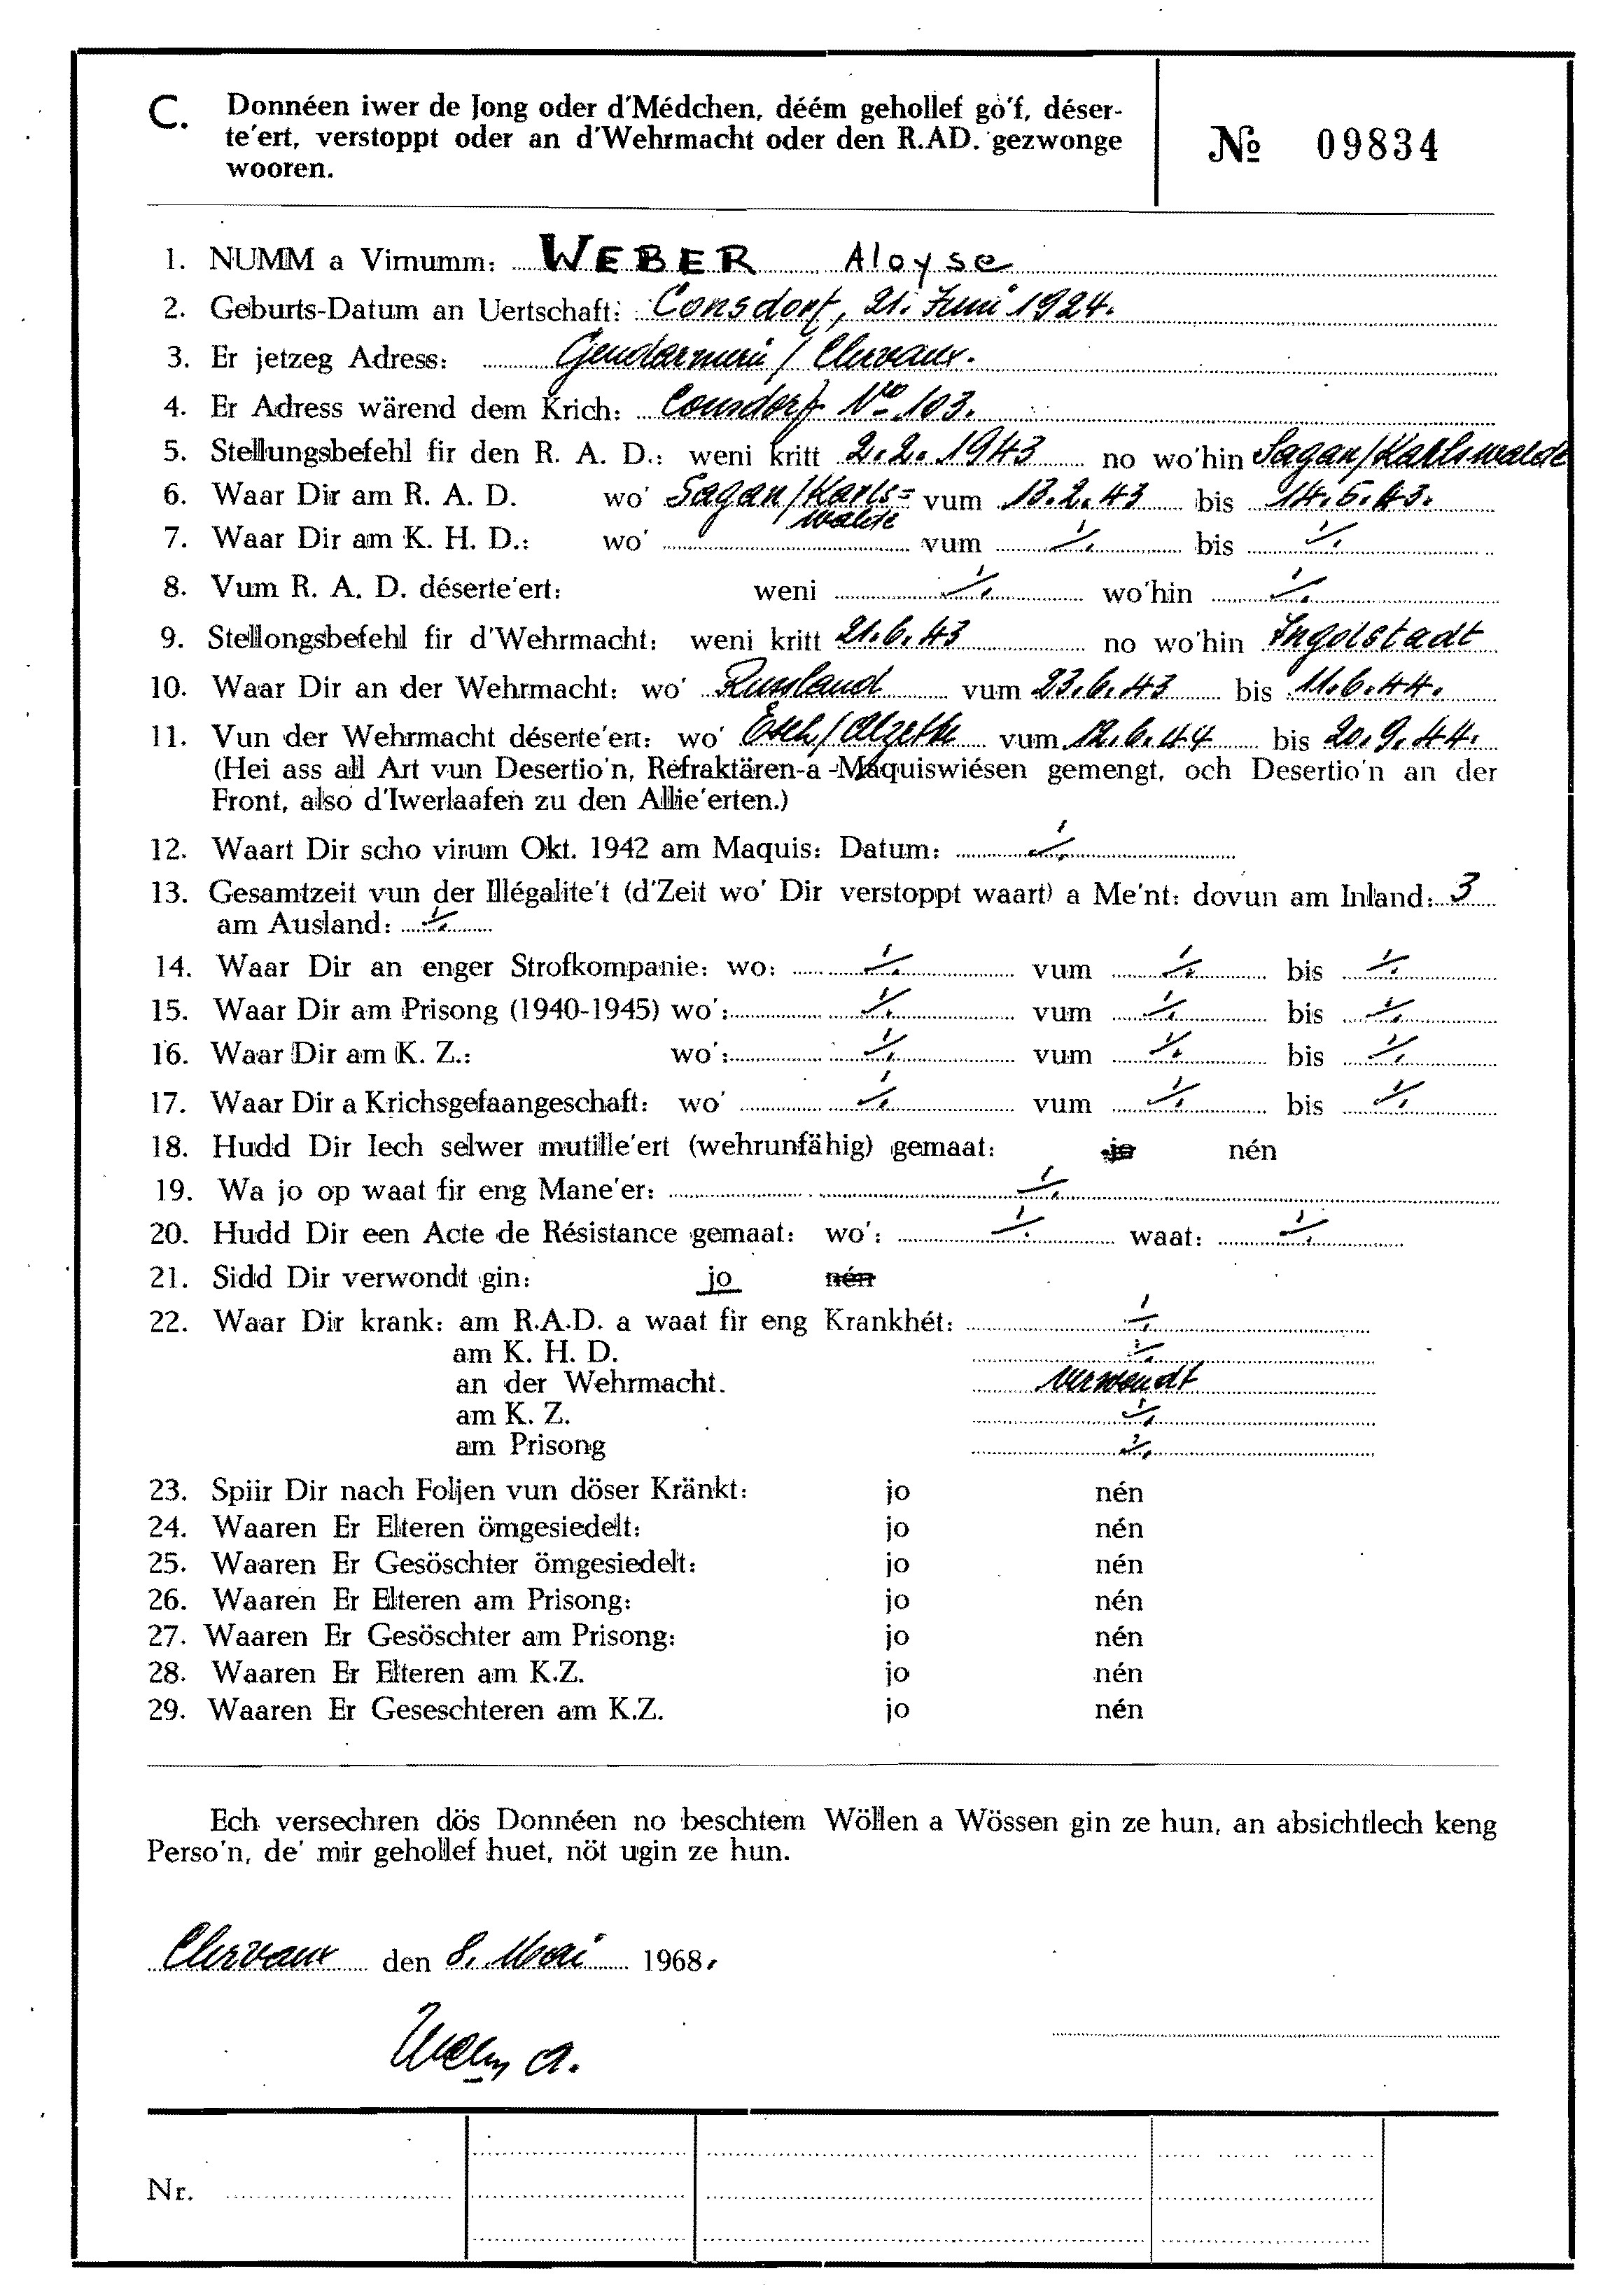 C. Donnéen iwer de Jong oder d'Médchen, déém gehollef gò'f, déser-
te'ert, verstoppt oder an d'Wehrmacht oder den R.AD. gezwonge
wooren.
№ 09834
1. NUMM a Virnumm: WEBER Aloyse
2. Geburts-Datum an Uertschaft: Consdorf, 21. Juni 1924.
3. Er jetzeg Adress: Gendarmerie / Clervaux.
4. Er Adress wärend dem Krich: Consdorf No 103.
5. Stellungsbefehl fir den R. A. D.: weni kritt 2.2.1943 no wo'hin Sagan/Karlswalde
6. Waar Dir am R. A. D. wo' Sagan/Karls= vum 13.2.43 bis 14.5.43.
walde
7. Waar Dir am K. H. D.: wo' vum ./. bis ./.
8. Vum R. A. D. déserte'ert: weni ./. wo'hin ./.
9. Stellongsbefehl fir d'Wehrmacht: weni kritt 21.6.43 no wo'hin Ingolstadt
10. Waar Dir an der Wehrmacht: wo' Russland vum 23.6.43 bis 11.6.44.
11. Vun der Wehrmacht déserte'ert: wo' Esch/Alzette vum 12.6.44 bis 20.9.44.
(Hei ass all Art vun Desertio'n, Refraktären-a -Maquiswiésen gemengt, och Desertio'n an der
Front, also d'Iwerlaafen zu den Allie'erten.)
12. Waart Dir scho virum Okt. 1942 am Maquis: Datum: ./.
13. Gesamtzeit vun der Illégalite't (d'Zeit wo' Dir verstoppt waart) a Me'nt: dovun am Inland: 3
am Ausland: ./.
14. Waar Dir an enger Strofkompanie: wo: ./. vum ./. bis ./.
15. Waar Dir am Prisong (1940-1945) wo': ./. vum ./. bis ./.
16. Waar Dir am K. Z.: wo': ./. vum ./. bis ./.
17. Waar Dir a Krichsgefaangeschaft: wo' ./. vum ./. bis ./.
18. Hudd Dir Iech selwer mutille'ert (wehrunfähig) gemaat: jo nén
19. Wa jo op waat fir eng Mane'er: ./.
20. Hudd Dir een Acte de Résistance gemaat: wo': ./. waat: ./.
21. Sidd Dir verwondt gin: jo nén
22. Waar Dir krank: am R.A.D. a waat fir eng Krankhét: ./.
am K. H. D. ./.
an der Wehrmacht. verwondt
am K. Z. ./.
am Prisong ./.
23. Spiir Dir nach Foljen vun döser Kränkt: jo nén
24. Waaren Er Elteren ömgesiedelt: jo nén
25. Waaren Er Gesöschter ömgesiedelt: jo nén
26. Waaren Er Elteren am Prisong: jo nén
27. Waaren Er Gesöschter am Prisong: jo nén
28. Waaren Er Elteren am K.Z. jo nén
29. Waaren Er Geseschteren am K.Z. jo nén
Ech versechren dös Donnéen no beschtem Wöllen a Wössen gin ze hun, an absichtlech keng
Perso'n, de' mir gehollef huet, nöt ugin ze hun.
Clervaux den 8. Mai 1968.
Weber A.
Nr.